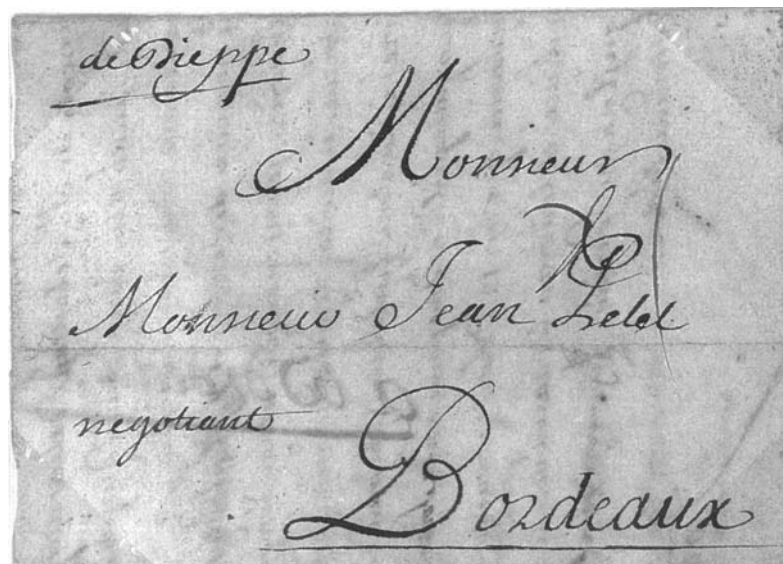 de Dieppe
Monsieur
Monsieur Jean Pelet
negotiant
Bordeaux